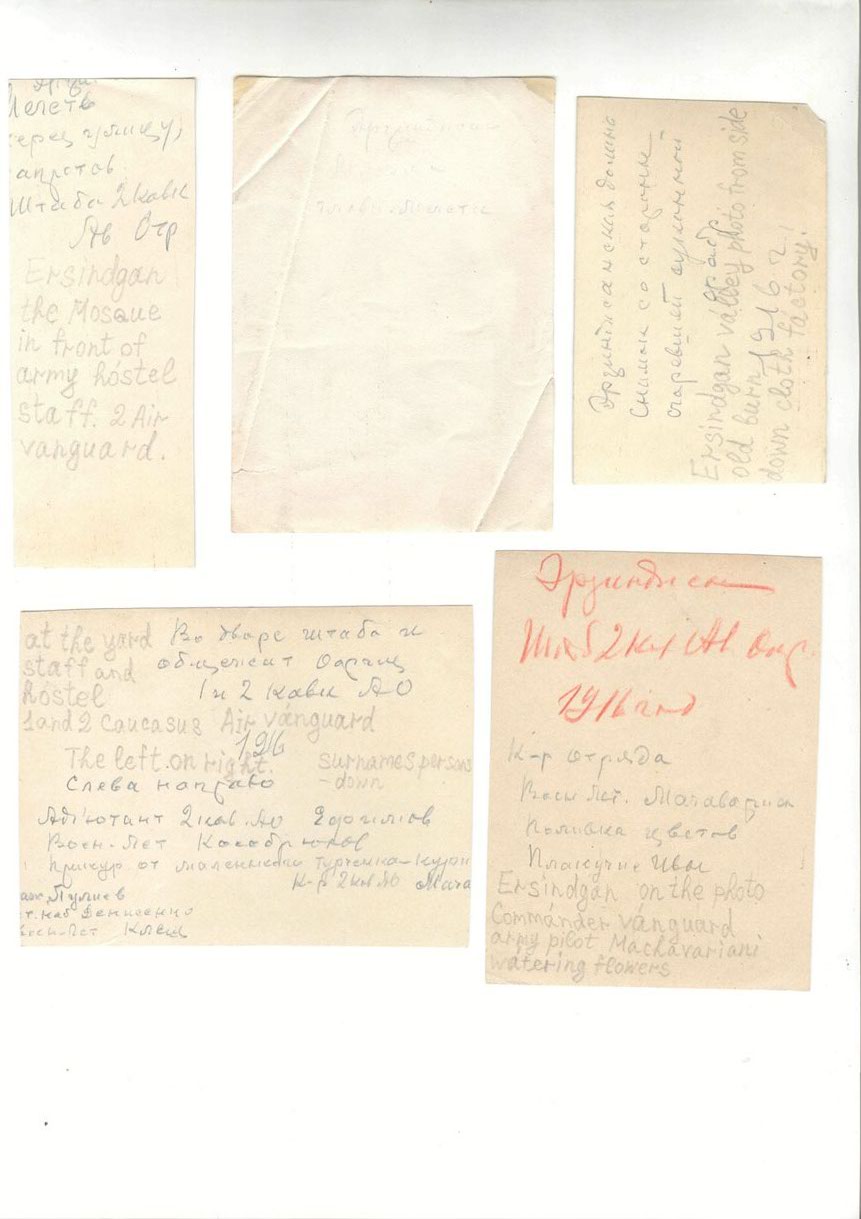 Мечеть
через улицу
Штаба 2 кавк
Ав Отр
Ersindgan
the Mosque
in front of
army hóstel
staff. 2 Air
vanguard.
Эрзинджан
Мечети
Эрзинджанская долина
снимок со стороны
сгоревшей суконной
фабр
1916 г.
Ersindgan válley photo from side
old burn
down cloth factory.
at the yard Во дворе штаба и
staff and общежит
hóstel 1 и 2 кавк АО
1 and 2 Caucasus Air vánguard
1916
The left on right. surnames persons
Слева направо -down
Адъютант 2 кав. АО
Воен-Лет
прикур от маленького турченка-курди
К-р 2 кав АО Мача
Денисенко
Воен-Лет Клещ
Эрзинджан
Штаб 2 кав Ав Отр.
1916 год
К-р отряда
Воен Лет. Мачавариани
Поливка цветов
Плакучие Ивы
Ersindgan on the photo
Commánder vánguard
army pilot Machavariani
wátering flowers